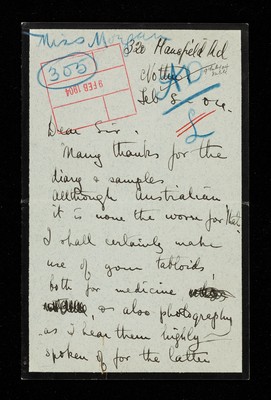 Miss Morgan
320 Mansfield Rd
305
9 FEB 1904
Feb 8 - 04.
Dear Sir.
Many thanks for the
diary & samples
although Australian
it is none the worse for that.
I shall certainly make
use of your tabloids,
both for medicine
, or also photography
as I hear them highly
spoken of for the latter